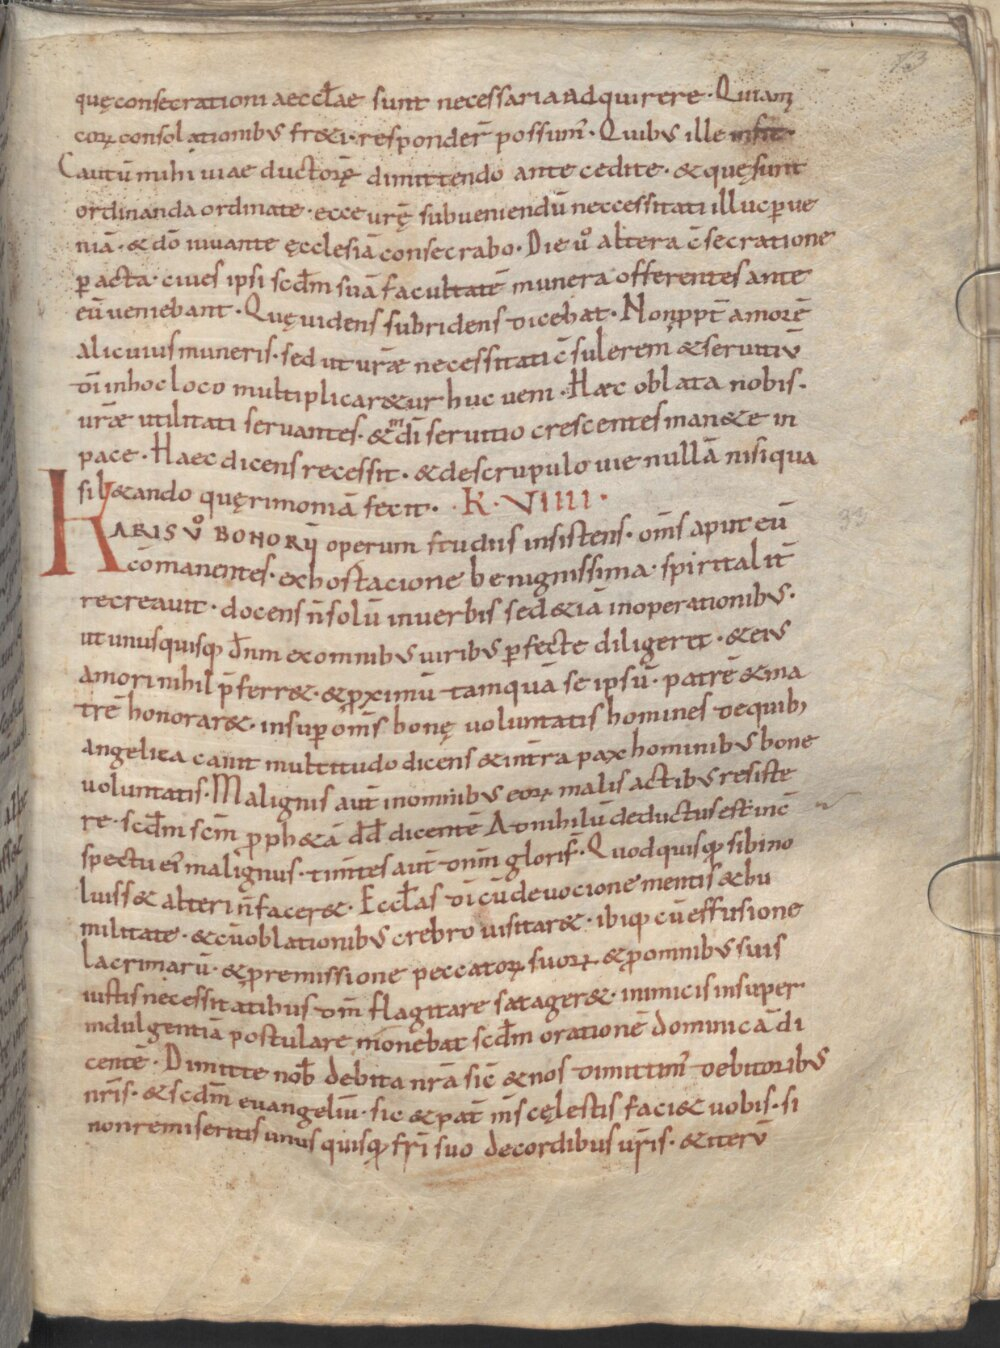 73
quę consecrationi aeccl̄ae sunt necessaria adquirere · Quiam
eorꝝ consolationibꝰ fr&i · responder̄ possum̄ · Quibꝰ ille infit ·
Cautū mihi uiae ductorē dimittendo ante cedite · & quę sunt
ordinanda ordinate · ecce ur̄ę subueniendū neccessitati illuc ꝑue
niā · & dō iuuante ęcclesiā consecrabo · Die u͛o altera c̄secratione
ꝑacta · ciues ipsi scd̄m suā facultatē munera offerentes ante
eū ueniebant · Quę uidens subridens dicebat · Non ꝓpt̄ amorē
alicuius muneris · sed ut ur̄æ necessitati c̄sulerem & seruitiū
dī in hoc loco multiplicar&ur huc ueni · Hæc oblata nobis ·
ur̄æ utilitati seruantes · & in dī seruitio crescentes man&e in
pace · Haec dicens recessit · & descrupulo uie nullā nisi qua
sibl&ando quęrimoniā fecit · K · VIIII ·
KARIS u͛o BONORŪ operum studiis insistens · om̄s aput eū
cōmanentes · exhostacione benignissima · spiritalit̄
recreauit · docens n̄ solū in uerbis sed & iā in operationibꝰ ·
ut unusquisqꝫ dn̄m ex omnibꝰ uiribꝰ ꝑfecte diligeret · & eiꝰ
amori nihil p̄ferr& · & ꝓximū tamquā se ipsū · patrē & ma
trē honorar& · insuꝑ om̄s bonę uoluntatis homines de quibꝫ
angelica canit multitudo dicens & in t̄ra pax hominibꝰ bone
uoluntatis · Malignis aut̄ in omnibꝰ eorꝝ malis actibꝰ resiste
re · scd̄m scm̄ ꝓph&ā dd̄ dicentē Ad nihilū deductus est in c̄
spectu eiꝰ malignus · tim̄tes aut̄ dnm̄ glorif̄ · Quod quisqꝫ sibi no
luiss& alteri n̄ facer& · Eccl̄as dī cū deuocione mentis & hu
militate · & cū oblationibꝰ crebro uisitar& · ibiqꝫ cū effusione
lacrimarū · & premissione peccatorꝝ suorꝝ & ꝓ omnibꝰ suis
iustis necessitatibus dm̄ flagitare satager& · inimicis insuper
indulgentiā postulare monebat scd̄m orationē dominicā di
centē · Dimitte nob̄ debita nr̄a sic̄ & nos dimittim̄ debitoribꝰ
nr̄is · & scd̄m euangeliū · sic & pat̄ m̄s cęlestis faci& uobis · si
non remiseritis unusquisqꝫ fr̄i suo de cordibus ur̄is · & iterū
33